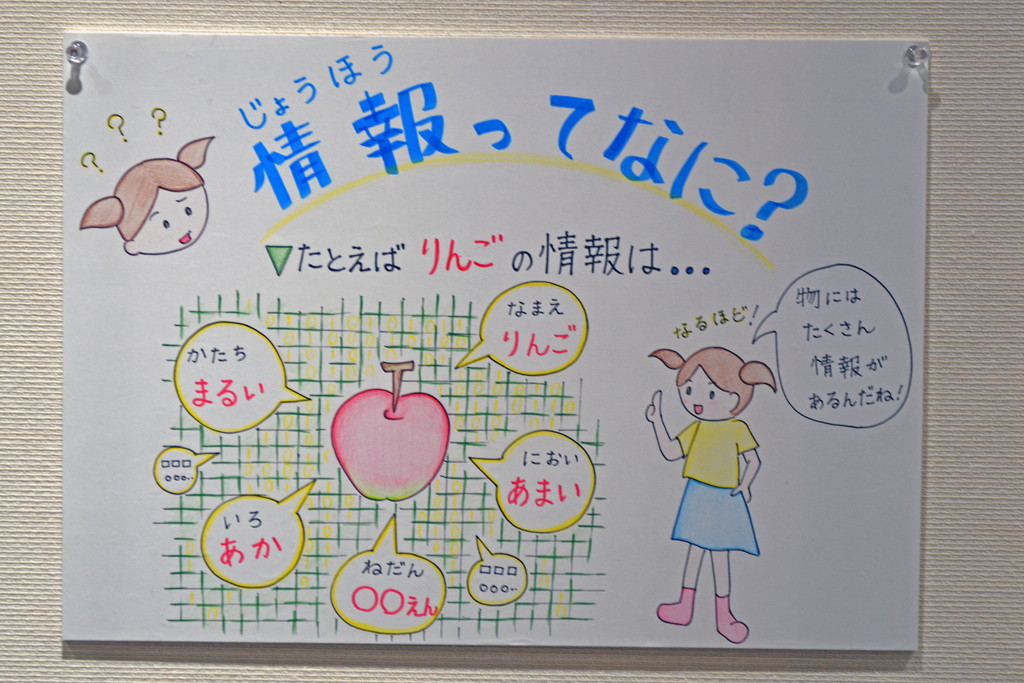 ? ? ?
じょうほう
情報ってなに?
▼たとえば りんごの情報は...
なまえ
りんご
かたち
まるい
□□□
○○○..
におい
あまい
いろ
あか
ねだん
○○えん
□□□
○○○..
なるほど!
物には
たくさん
情報が
あるんだね!